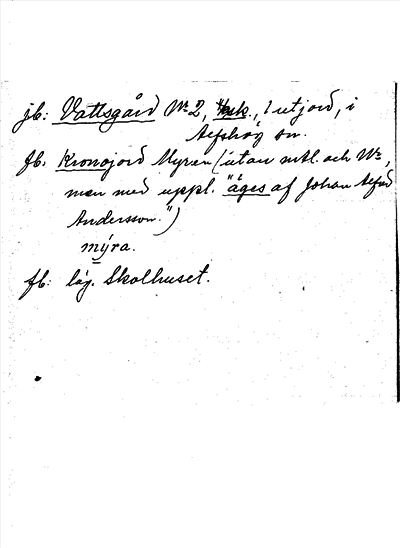 jb: Vattsgård No 2, 1/4 sk., 1 utjord, i
Alfshög sn.
fb. Kronojord Myran (utan mtl. och No,
men med uppl. "äges af Johan Alfred
Andersson.")
mýra.
fb: låg. Skolhuset.